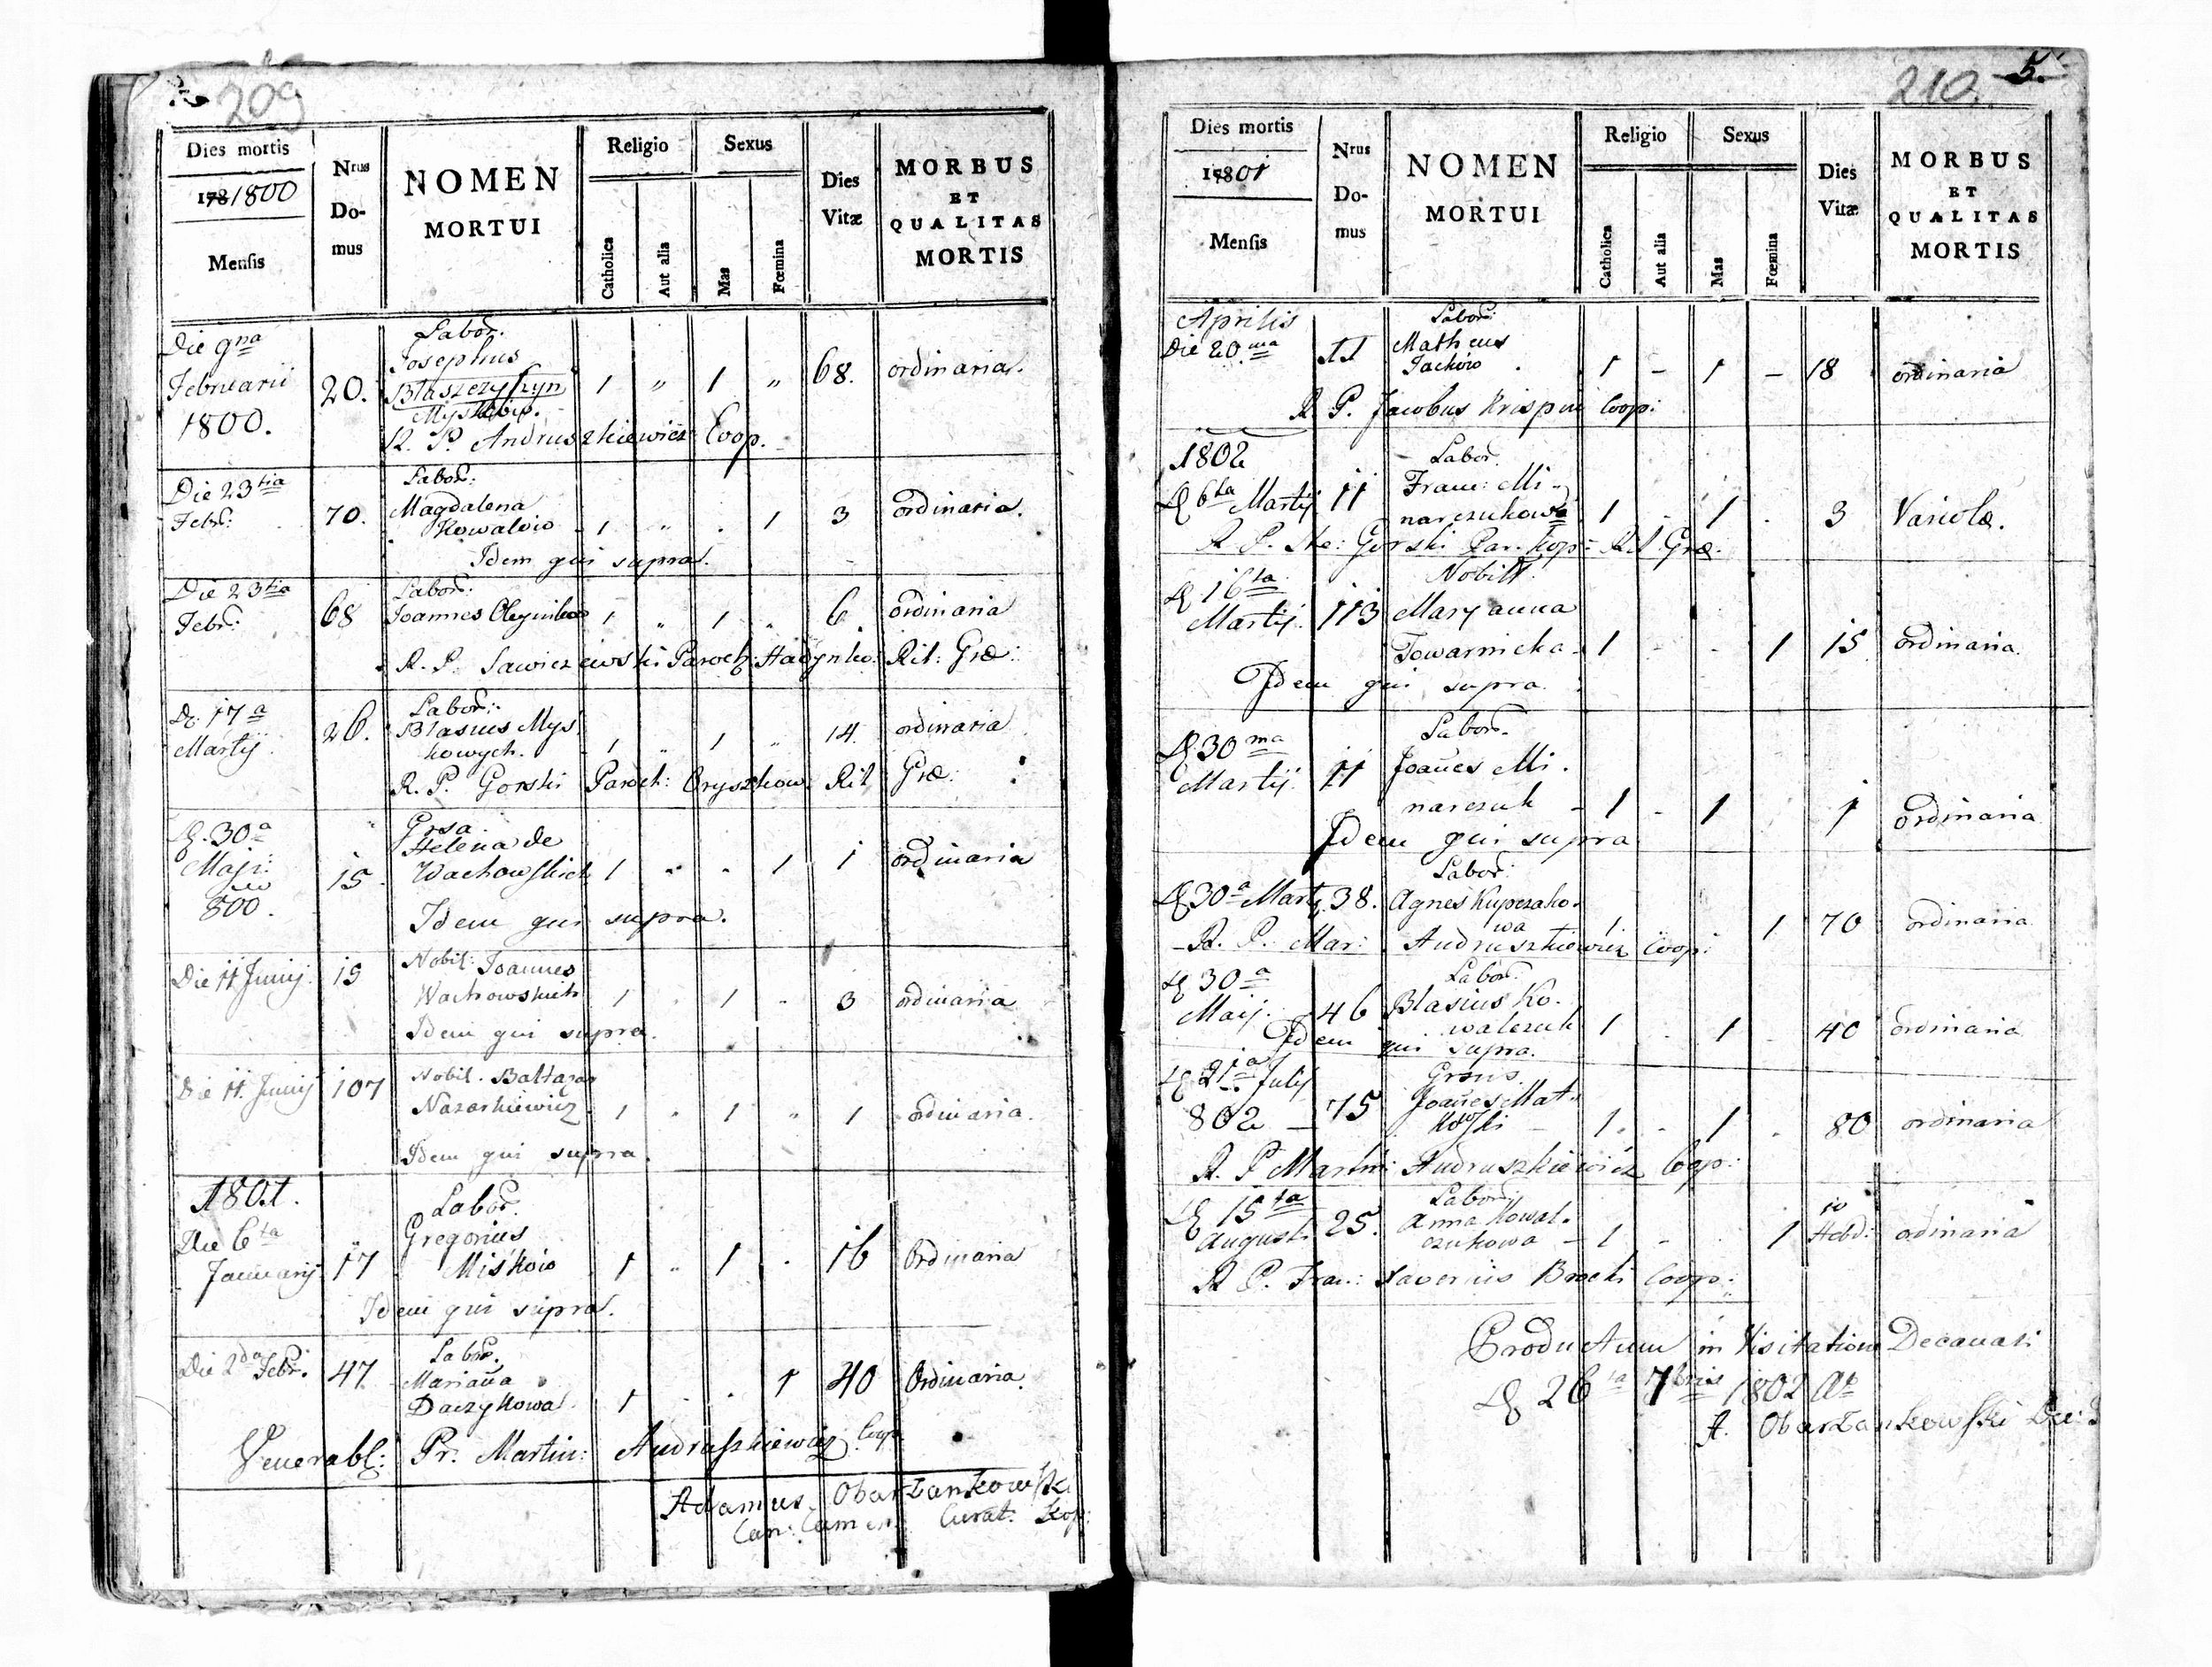 209
Dies mortis
1781800
Mensis
Nrus
Do-
mus
NOMEN
MORTUI
Religio
Catholica
Aut alia
Sexus
Mas
Fœmina
Dies
Vitæ
MORBUS
ET
QUALITAS
MORTIS
Die 9na
Februarii
1800.
20.
Labor:
Josephus
Błaszczyszyn
1 " 1 " 68. ordinaria.
R. P. Andruszkiewicz Coop.
Die 23tia
Febr:
70.
Labor:
Magdalena
Kowalvio
1 " . 1 3 ordinaria.
Idem qui supra.
Die 23tia
Febr:
68
Labor:
Joannes
1 " 1 " 6 ordinaria
R. P. Sawiczewski Paroch: Hadynko: Rit: Græ:
D. 17a
Martij.
26.
Labor:
Blasius Mys
kowych.
1 " 1 " 14. ordinaria
R. P. Gorski Paroch: Oryszkow. Rit Græ:
D. 30a
Maji:
800.
15.
Grsa.
Helena de
Wachowskich
1 " " 1 1 ordinaria
Idem qui supra.
Die 11 Junij.
15
Nobil: Joannes
Wachowskich
1 . 1 . 3 ordinaria
Idem qui supra.
Die 11. Junij
107
Nobil. Baltazar
Nazarkiewicz
1 " 1 " 1 ordinaria.
Idem qui supra.
1801.
Die 6ta
Januarij
17
Labor.
Gregorius
Miskow
1 " 1 . 16 Ordinaria
Idem qui supra.
Die 2da Febr.
47
Labor.
Mariaña
Daczykowa
1 . . 1 40 Ordinaria.
Venerabl: Pr. Martin: Andruszkiewicz Coop
Adamus Obarzankowski
Can: Camen: Curat. Kop:
210. 5.
Dies mortis
17801
Mensis
Nrus
Do-
mus
NOMEN
MORTUI
Religio
Catholica
Aut alia
Sexus
Mas
Fœmina
Dies
Vitæ
MORBUS
ET
QUALITAS
MORTIS
Aprilis
Die 20.ma
11
Labor:
Matheus
Jackow
1 - 1 - 18 ordinaria
R. P. Jacobus Krispin Coop:
1802
D. 6ta Martij
11
Labor.
Franc: Mi-
narczukow
1 . 1 . 3 Variolæ.
R. P. Gorski Par. Kop: Rit Græ.
D. 16ta
Martij.
113
Nobilis.
Maryanna
Towarnicka
1 - - 1 15 ordinaria.
Idem qui supra.
D. 30ma
Martij.
11
Labor.
Joañes Mi.
narczuk
1 - 1 1 ordinaria
Idem qui supra
D. 30a Martij
38.
Labor:
Agnes Kupczako.
wa
1 1 70 ordinaria
R. P. Mar: Andruszkiewicz Coop:
D. 30a
Maij.
46
Labor.
Blasius Ko.
walczuk
1 . 1 . 40 ordinaria
Idem qui supra.
D. 21a July
802
75
Grsus.
Joañes Mat-
kowski
1 . - 1 . 80 ordinaria
R. P. Martin: Andruszkiewicz Coop:
D. 15ta
August.
25.
Labor.
Anna Kowal.
czukowa
1 - . 1 10
Hebd: ordinaria
R. P. Fran: Xaverius Coop:
Productum in Visitatione Decanali
D. 26ta 7bris 1802 Ao
A. Obarzankowski Dec: